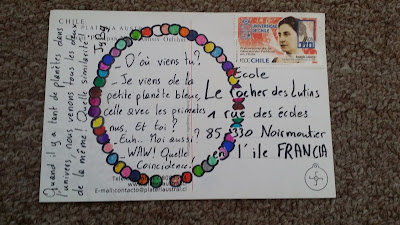 CHILE
PLATERIA AUSTRAL
D'où viens tu?
- Je viens de la
petite planète bleue,
celle avec les primates
nus. Et toi?
- Euh.. Moi aussi
WAW! Quelle
coïncidence!
Quand il y a tant de planètes dans
l'univers, nous venons tous les deux
de la même! Quelle similarité!
UNIVERSIDAD
DE CHILE
CHILE
École
Le Rocher des Lutins
1 rue des écoles
85 330 Noirmoutier
en l'île FRANCIA
E-mail:contacto@plateriaustral.cl